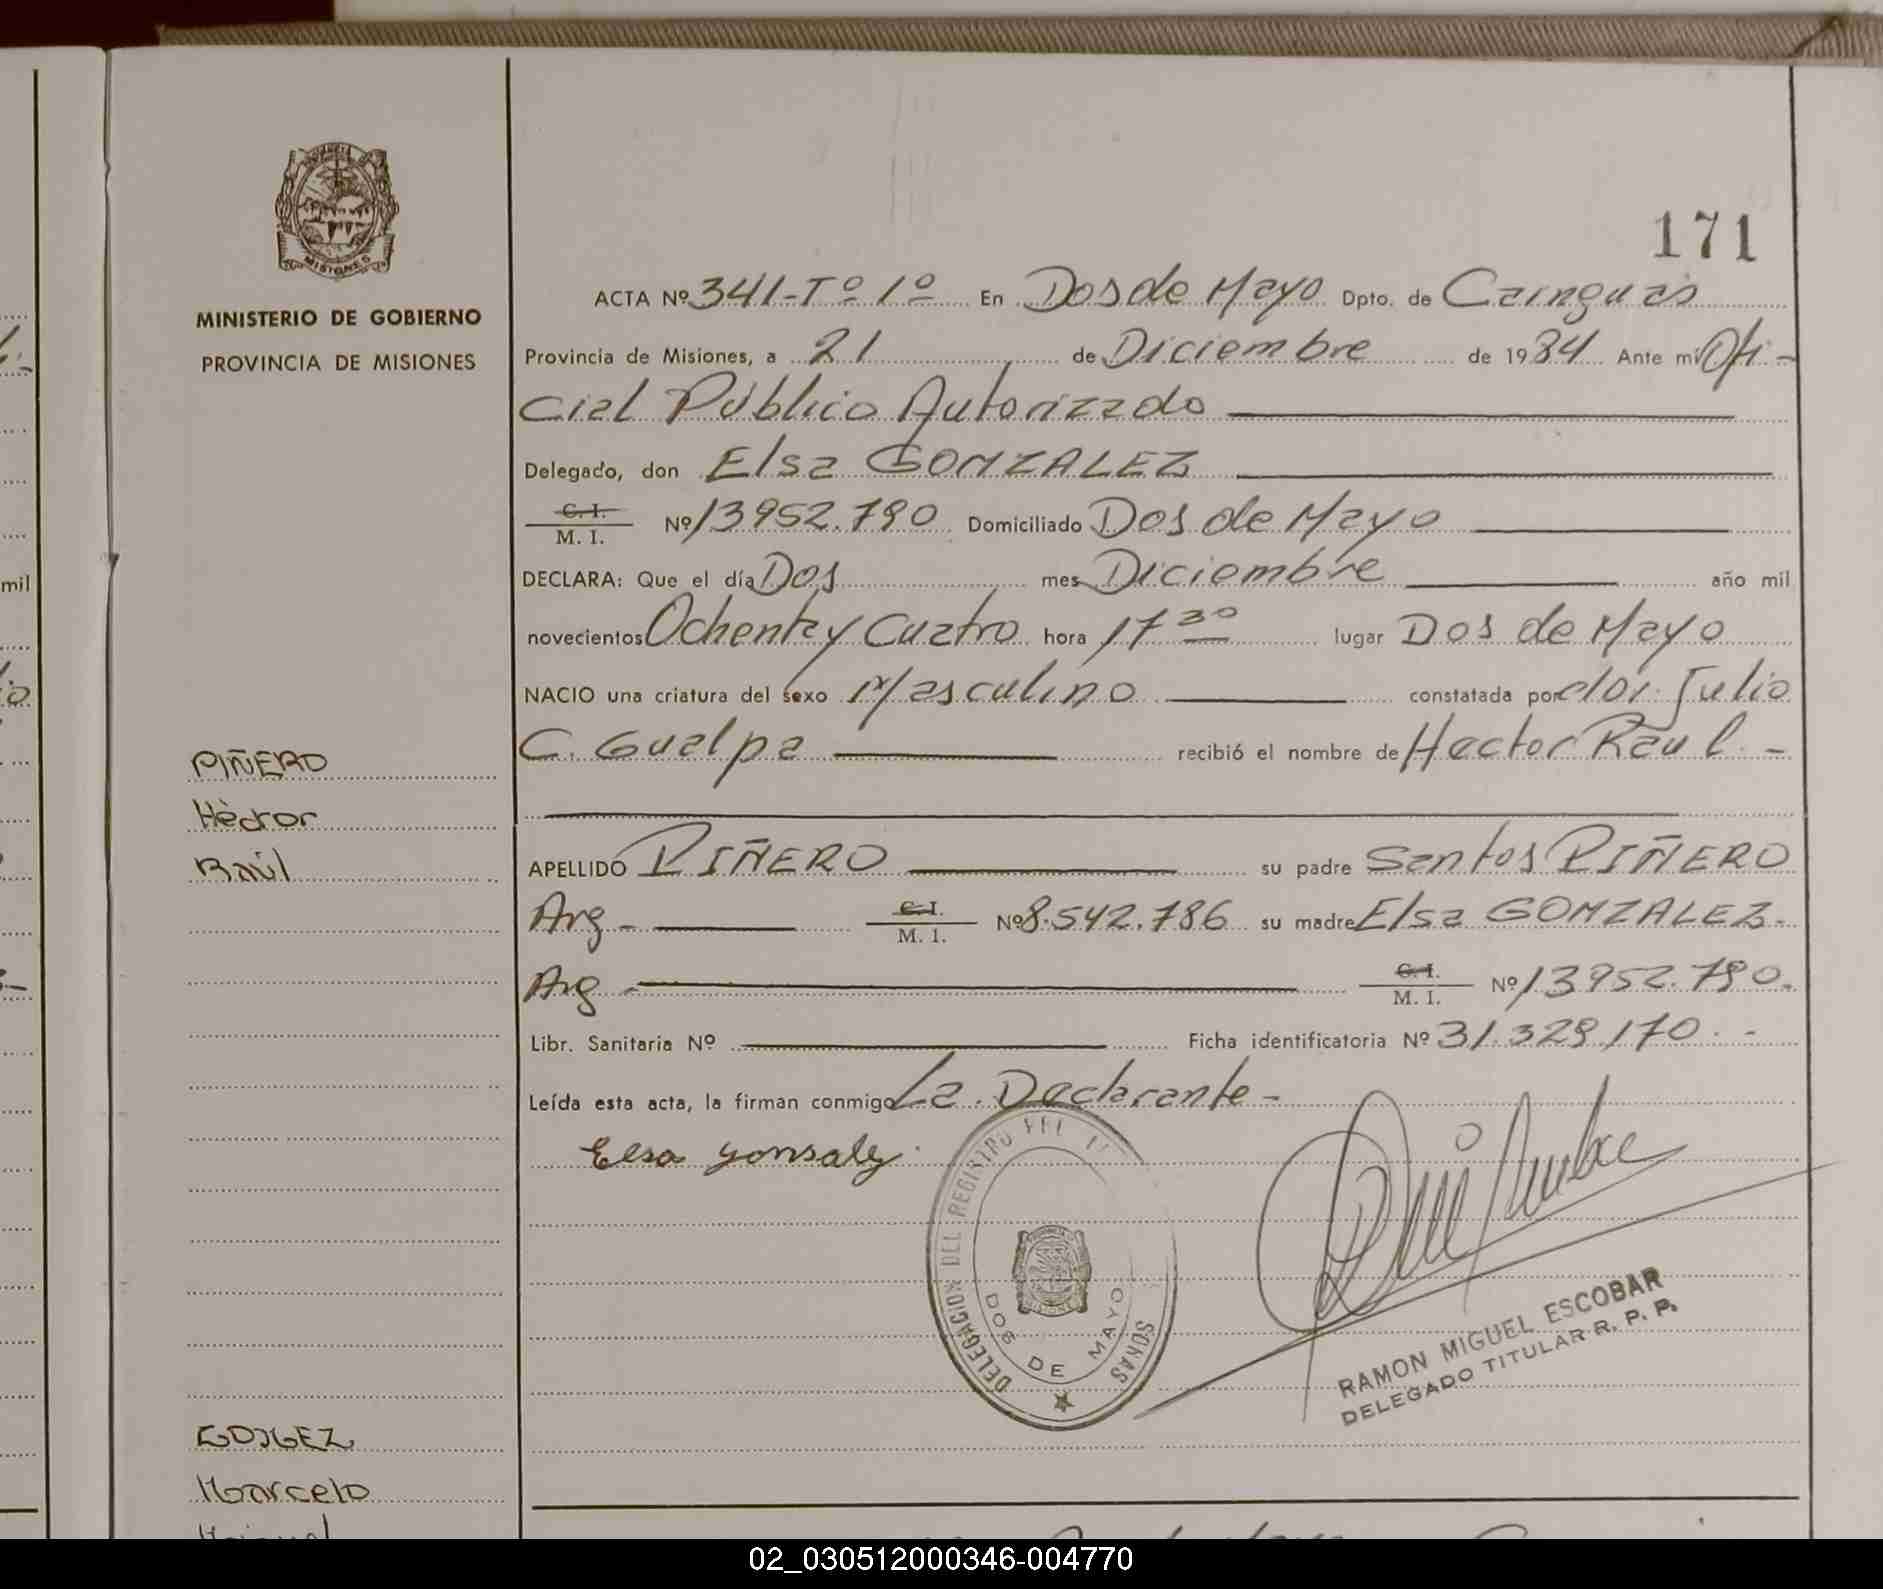 171
MINISTERIO DE GOBIERNO
PROVINCIA DE MISIONES
ACTA Nº 341-Tº 1º En Dos de Mayo Dpto. de Cainguas
Provincia de Misiones, a 21 de Diciembre de 1984 Ante mi Ofi-
cial Público Autorizado
Delegado, don Elsa GONZALEZ
C. I.
M. I. Nº 13952.790 Domiciliado Dos de Mayo
DECLARA: Que el día Dos mes Diciembre año mil
novecientos Ochenta y Cuatro hora 17 30 lugar Dos de Mayo
NACIO una criatura del sexo Masculino constatada por dor. Julio
C. Gualpa recibió el nombre de Hector Raul -
APELLIDO PIÑERO su padre Santos PIÑERO
Arg - C. I. M. I. Nº 8.542.786 su madre Elsa GONZALEZ-
Arg - C. I. M. I. Nº 13952.790-
Libr. Sanitaria Nº Ficha identificatoria Nº 31.329.170. -
Leída esta acta, la firman conmigo La Declarante -
Elsa gonsalez
PIÑERO
Hèctor
Raúl
DELEGACION DEL REGISTRO DE
DOS DE MAYO
RAMON MIGUEL ESCOBAR
DELEGADO TITULAR R. P. P.
Marcelo
mil
02_030512000346-004770